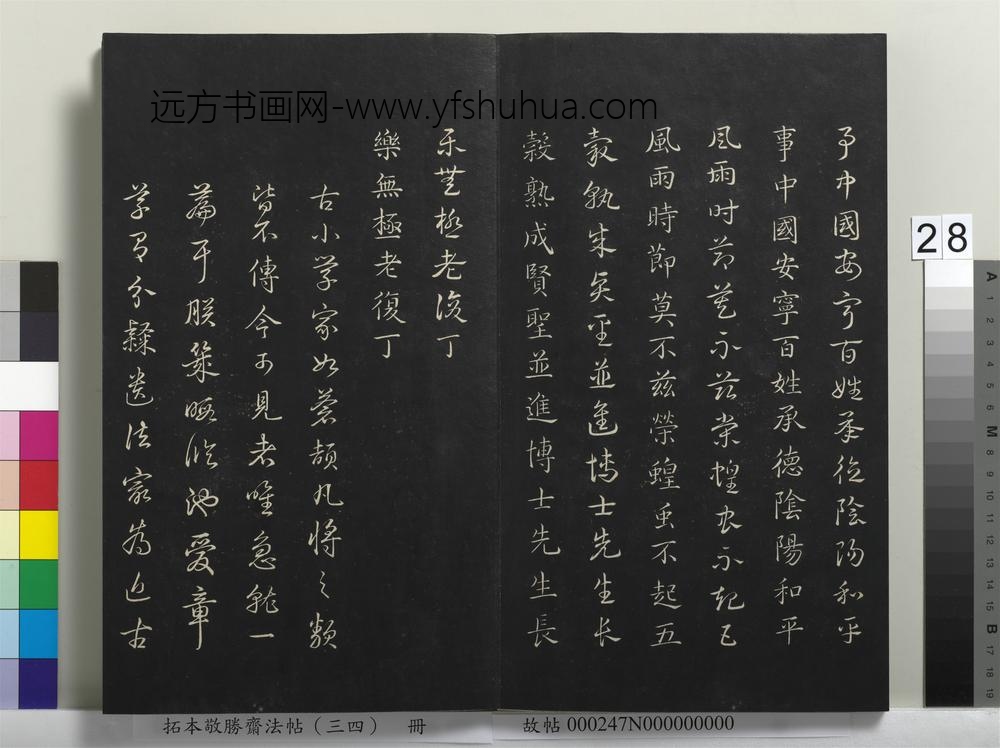 远方书画网-www.yfshuhua.com
事中國安寧百姓承德陰陽和平
事中國安寧百姓承德陰陽和平
風雨時節莫不茲榮蝗虫不起五
風雨時節莫不茲榮蝗虫不起五
穀熟成賢聖並進博士先生長
穀熟成賢聖並進博士先生長
樂無極老復丁
樂無極老復丁
古小学家如蒼頡凡將之類
皆不傳今可見者唯急就一
篇于朕幾暇臨池愛章
草有分隸遺法寫為近古
28
A 1 2 3 4 5 6 M 8 9 10 11 12 13 14 15 B 17 18 19
拓本敬勝齋法帖（三四） 冊
故帖 000247N000000000